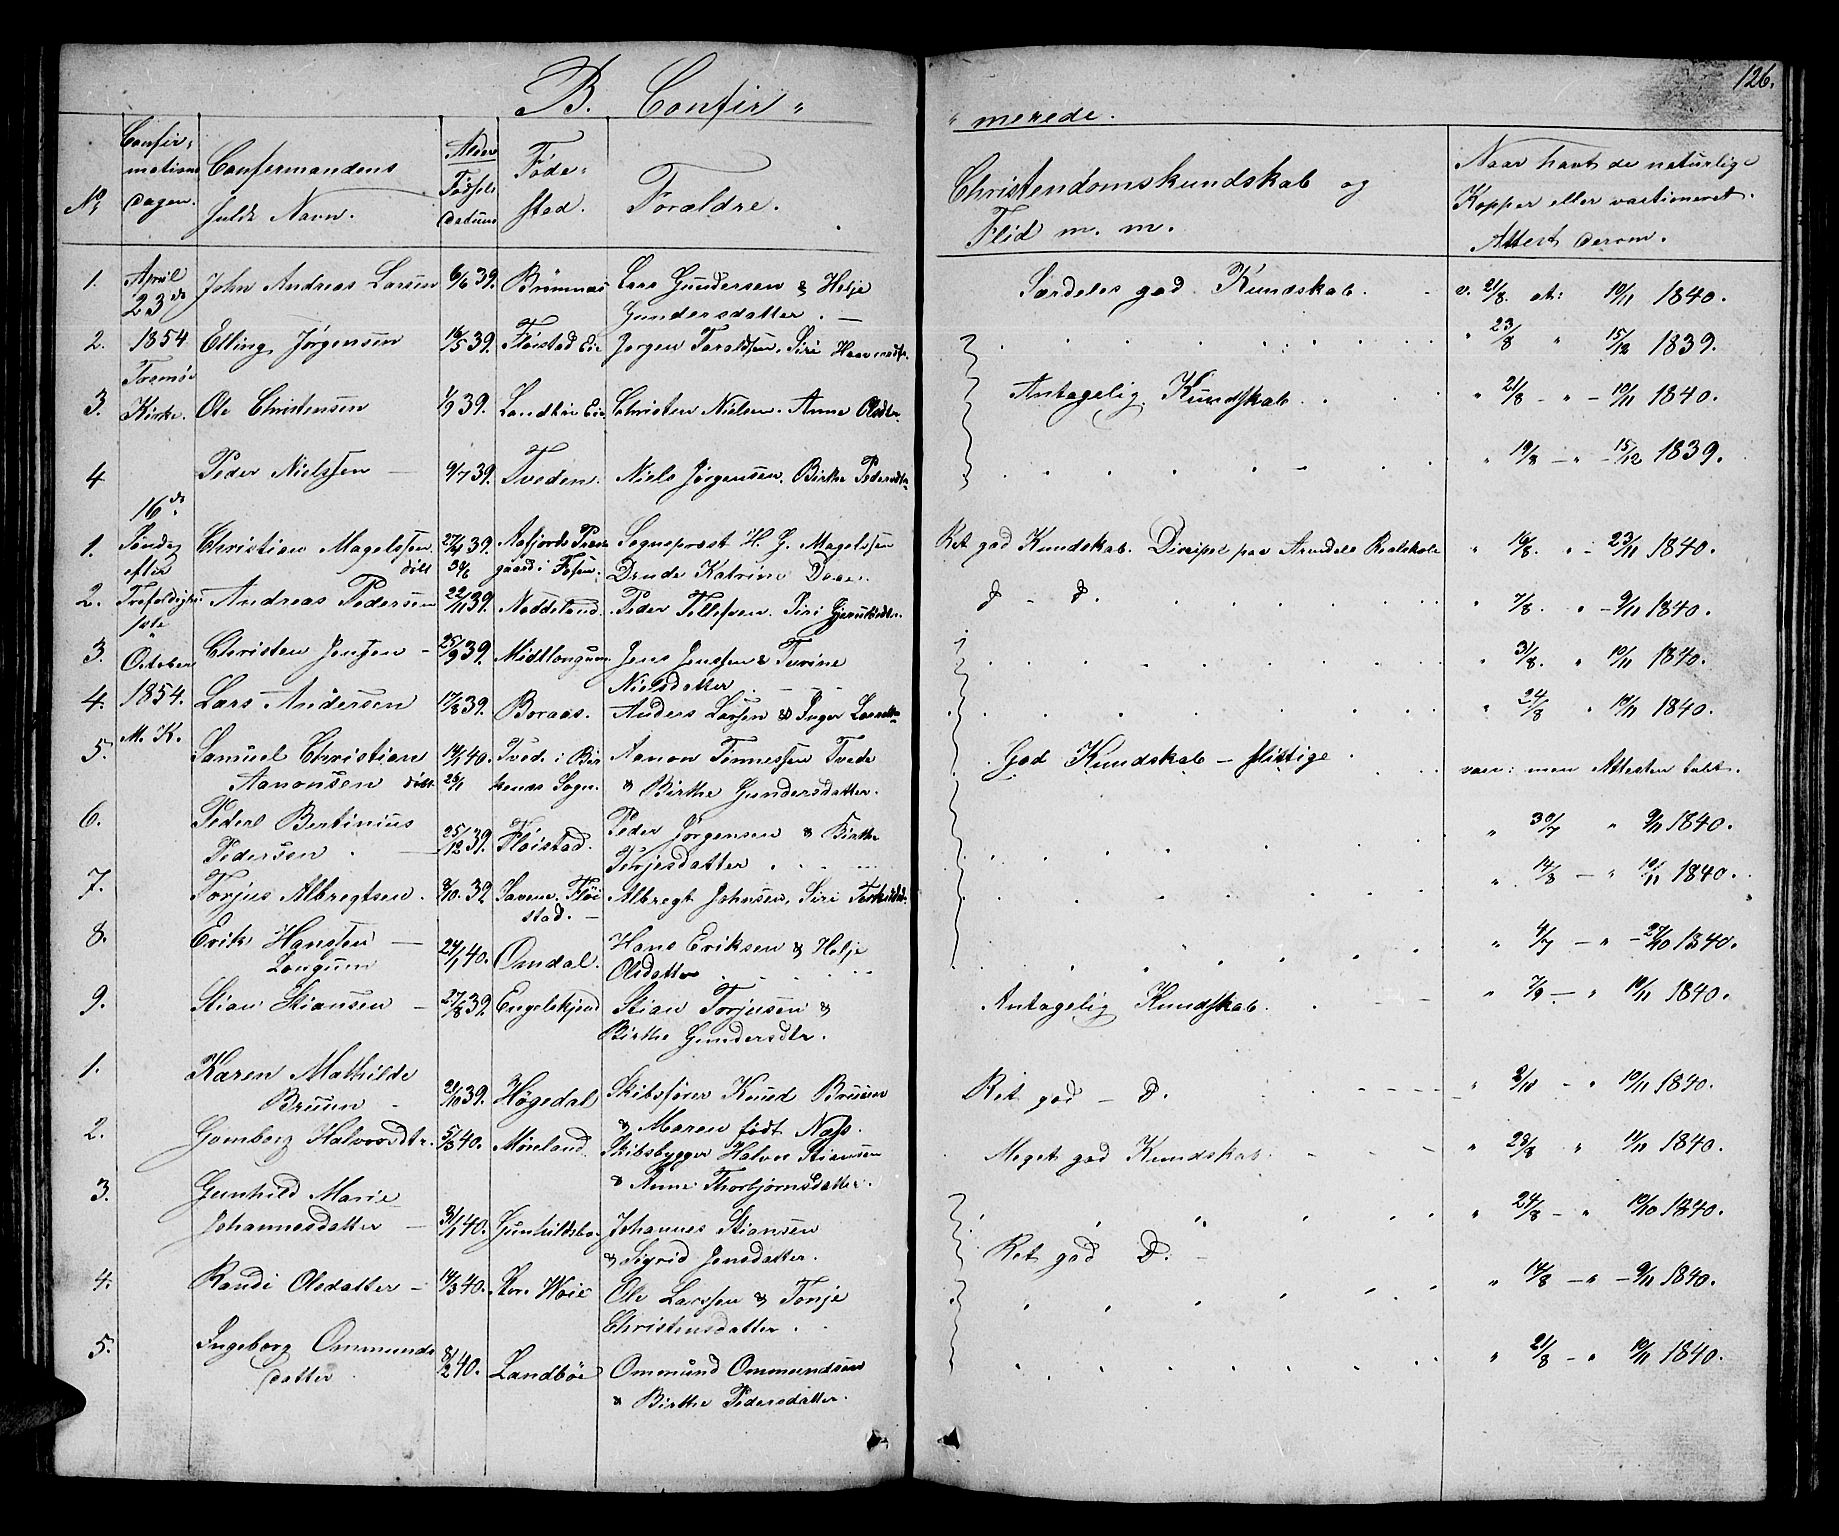 126.
B. Confir „
„ merede.
No
Confir- mations dagen.
Confermandens fulde Navn.
Alder Fødsels datum
Føde- sted.
Forældre.
Christendomskundskab og Flid m. m.
Naar havt de naturlige Kopper eller vaccineret. Attest derom.
1. April 23de John Andreas Larsen 6/6 39. Brømnæs Lars Gundersen & Helje Særdeles god Kundskab. v. 21/8 at: 10/11 1840.
Gundersdatter. —
2. 1854 Elling Jørgensen 16/5 39. Fløistad Jørgen Taraldsen, Siri „ 23/8 „ 15/12 1839.
Tromø
3. Kirke. Ole Christensen 1/9 39. Landbøe Christen Nielsen. Anne Olsdtr. Antagelig Kundskab. „ 21/8 - „ - 10/11 1840.
4 Peder Nielssen — 9/7 39. Tveden. Niels Jørgensen. Birthe Pedersdtr. „ 19/8 - „ - 15/12 1839.
16de
1. Søndag Christian Magelssen 27/4 39. Aafjords Præste Sogneprest H. G. Magelssen Ret god Kundskab. Discipel paa Arendals Realskole „ 16/8. „ - 23/11 1840.
efter døbt 30/6 gaard i Fosen. Drude Katrine Daae.
2. Trefoldigheds Andreas Pedersen 22/11 39. Neddeland. Peder Tellefsen. Siri d - d. „ 7/8. „ - 9/11 1840.
3. October Christen Jensen - 25/9 39. Midtlongum. Jens Jenssen & Turine „ 31/8. „ 10/11 1840.
Nielsdatter - - -
4. 1854. Lars Andersen 17/8 39. Boraas. Anders Larsen & Inger „ 24/8 „ 10/11 1840.
M. K.
5. Samuel Christian 14/1 40. Tvede i Bir Aanon Tønnessen Tvede God Kundskab - flittige vac: men Attesten tabt.
Aanonsen døbt 26/1 kenæs Sogn. & Birthe Gundersdatter.
6. Peder Bertinius
Pedersen 25/12 39. Fløistad. Peder Jørgensen & Birthe „ 30/7 „ 9/11 1840.
Terjesdatter
7. Torjus Albregtsen. 8/10. 39. Fløi Albregt Johnsen, Siri „ 14/8 - „ 10/11 1840.
stad. —
8. Erik Hanssen — 24/1 40. Omdal. Hans Eriksen & Helje „ 4/7 - „ - 27/10 1840.
Longum Olsdatter
9. Stian Stiansen - 27/8 39. Engelskjend Stian Torjusen & Antagelig Kundskab. „ 7/9 - „ 10/11 1840.
Birthe Gundersdtr.
1. Karen Mathilde
Bruun - 21/10 39. Høgedal Skibsfører Knud Bruun Ret god - D. „ 2/10 - „ 10/11 1840.
& Maren født Næss.
2. Gomborg Halvorsdtr. 5/3 40. Moreland. Skibsbygger Halvor Stiansen Meget god Kundskab. „ 23/8 „ 11/11 1840.
& Anne Thorbjørnsdatter.
3. Gunhild Marie
Johannesdatter - 3/1 40. Gunhildsbo Johannes Stiansen „ 24/8 - „ 10/10 1840.
& Sigrid Jensdatter. Ret god D. -
4. Randi Olsdatter - 14/3 40. Str. Woie Ole Larssen & Tonje „ 14/8 - „ - 9/11 1840.
Christensdatter
5. Ingeborg Ommunds
datter 8/2 40. Landbøe Ommund Ommundsen „ 21/8 - „ 10/11 1840.
& Birthe Pedersdatter.